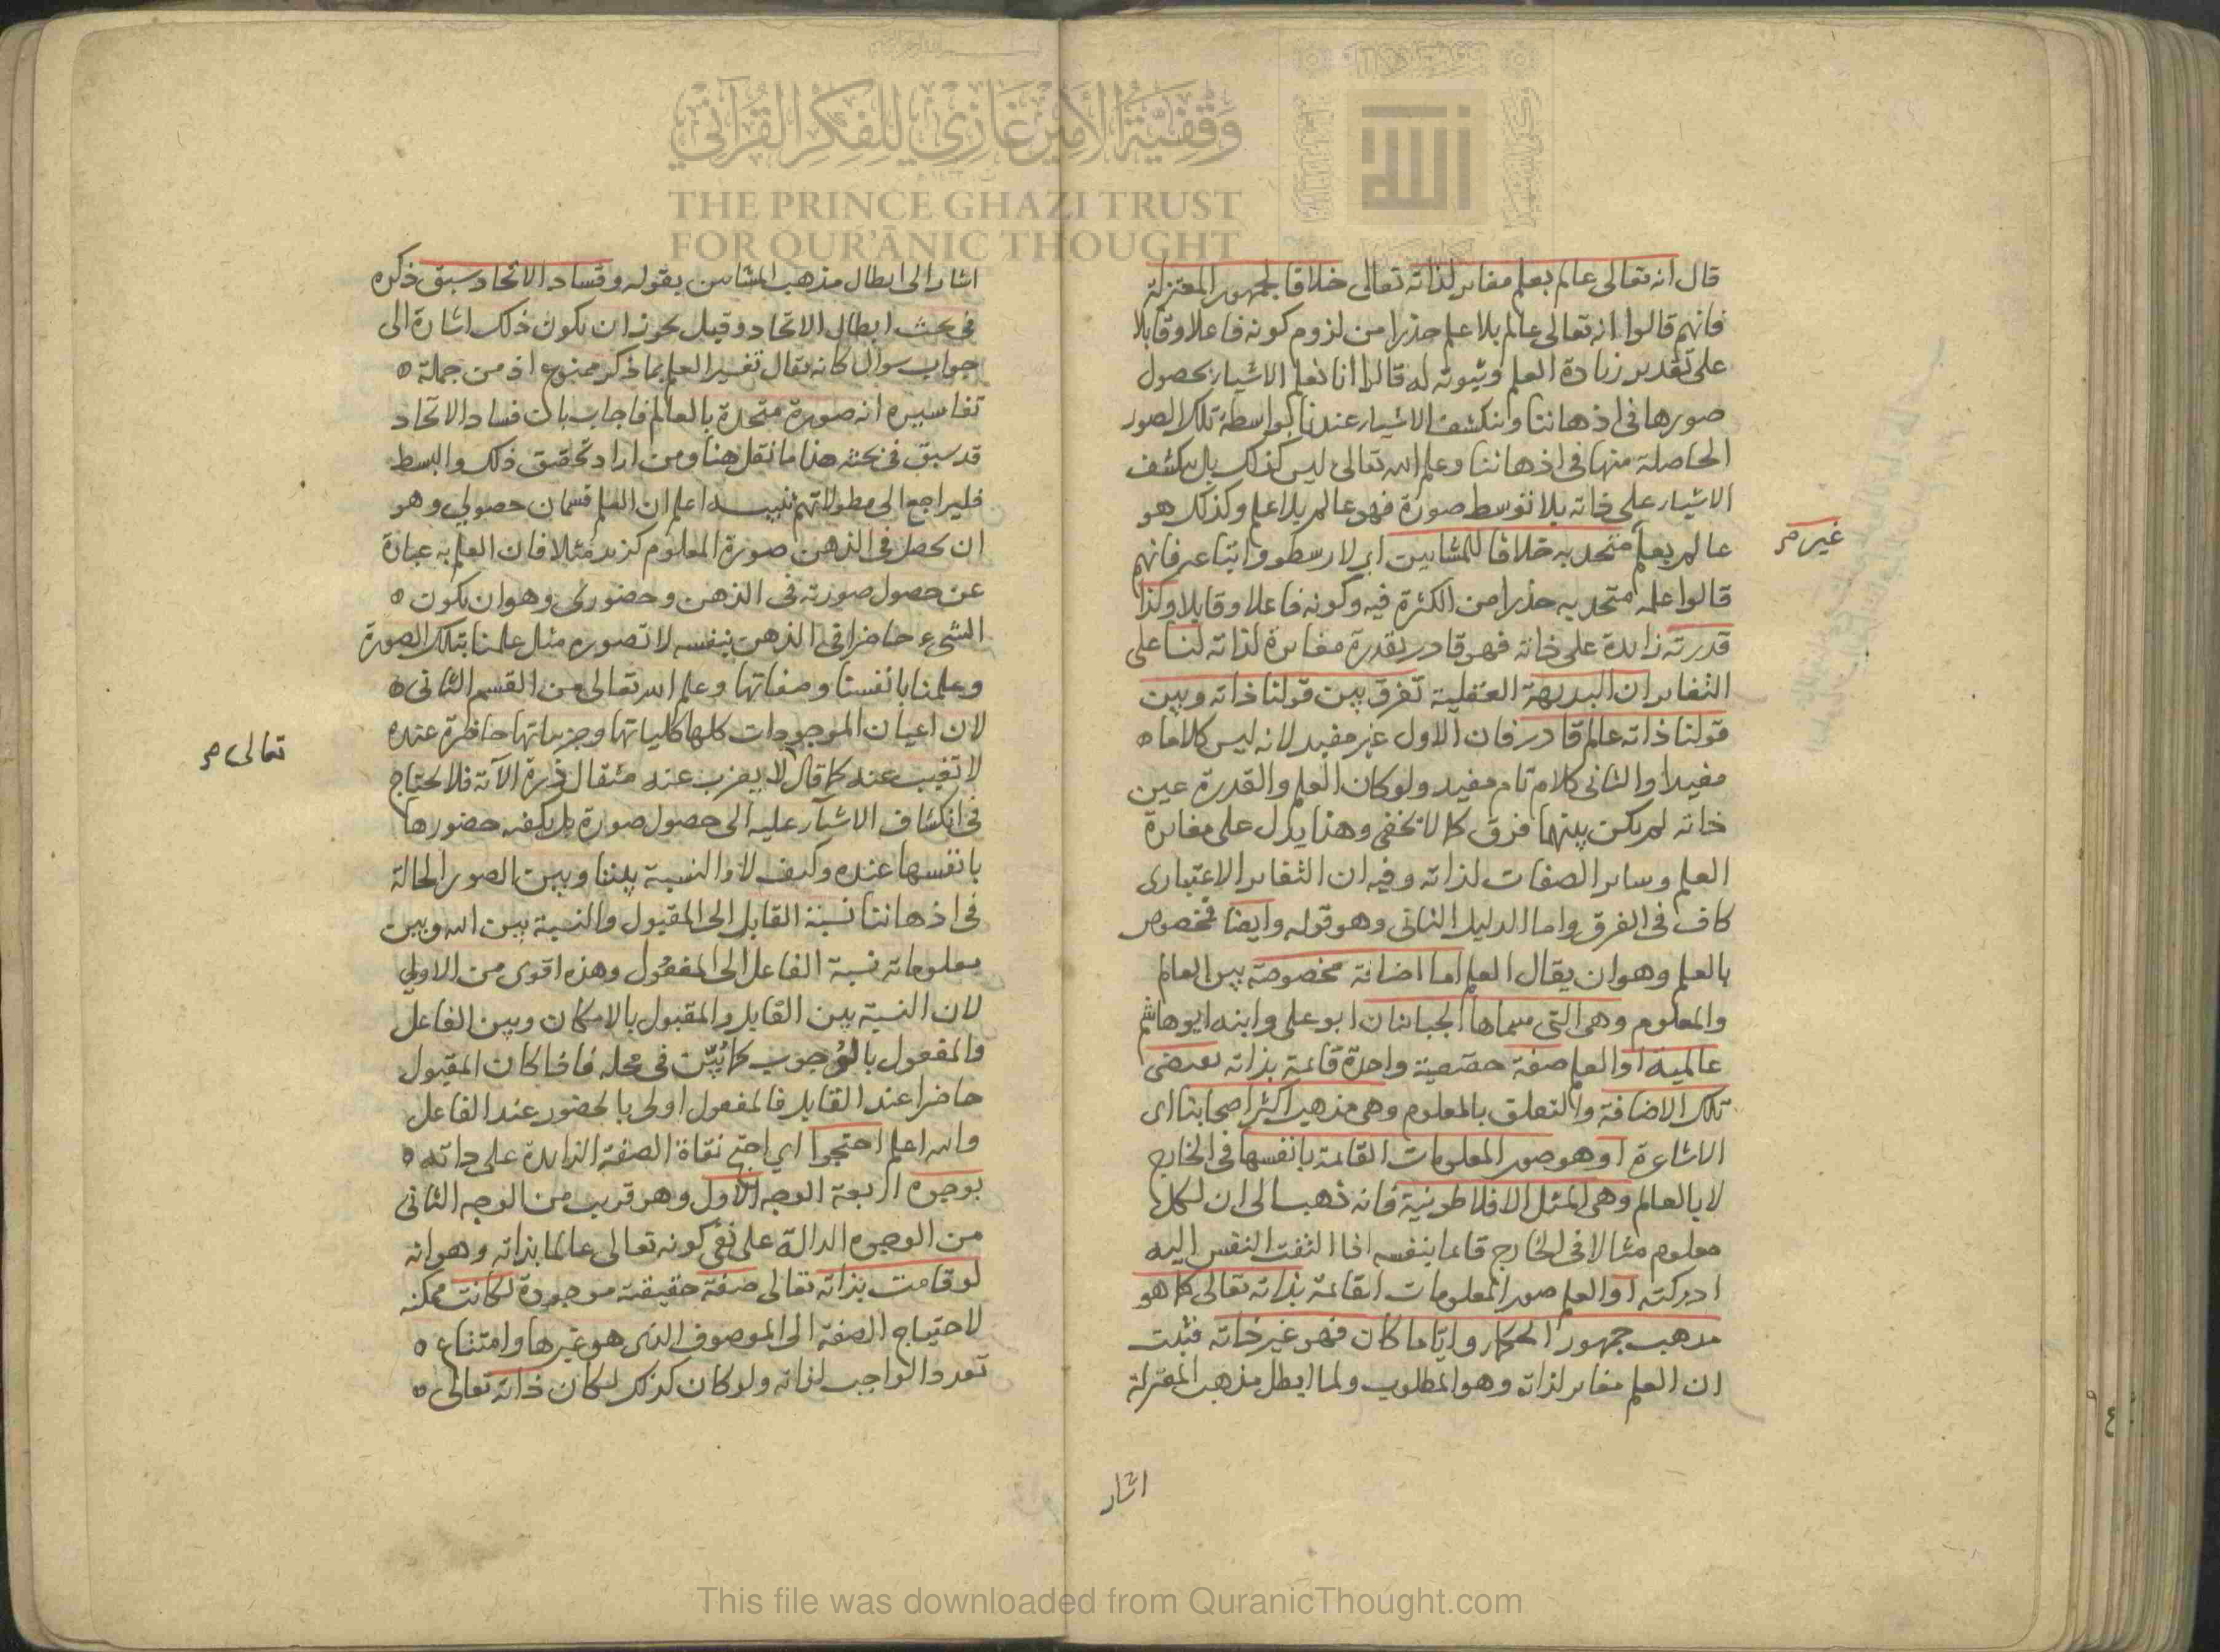 وقفية الأمير غازي للفكر القرآني
THE PRINCE GHAZI TRUST
FOR QUR'ĀNIC THOUGHT
الله
قال انه تعالى عالم بعلم مغاير لذاته تعالى خلافا لجمهور المعتزلة
فانهم قالوا انه تعالى عالم بلا علم حذرا من لزوم كونه فاعلا وقابلا
على تقدير زيادة العلم وثبوته له قالوا انا نعلم الاشياء بحصول
صورها في اذهاننا وانكشف الاشياء عندنا بواسطة تلك الصور
الحاصلة منها في اذهاننا وعلم الله تعالى ليس كذلك بل ينكشف
الاشياء على ذاته بلا توسط صورة فهو عالم بلا علم وكذلك هو
عالم بعلم متحد به خلافا للمشايين اي لارسطو واتباعه فانهم
غير صح
قالوا علمه متحد به حذرا من الكثرة فيه وكونه فاعلا وقابلا وكذا
قدرته زايدة على ذاته فهو قادر بقدرة مغايرة لذاته لنا على
التغاير ان البديهة العقلية تفرق بين قولنا ذاته وبين
قولنا ذاته عالم قادر فان الاول غير مفيد لانه ليس كلاما ه
مفيدا والثاني كلام تام مفيد ولو كان العلم والقدرة عين
ذاته لم يكن بينهما فرق كما لا يخفى وهذا يدل على مغايرة
العلم وساير الصفات لذاته وفيه ان التغاير الاعتباري
كاف في الفرق واما الدليل الثاني وهو قوله وايضا فمخصوص
بالعلم وهو ان يقال العلم اما اضافة مخصوصة بين العالم
والمعلوم وهي التي سماها الجبائيان ابو علي وابنه ابو هاشم
عالمية او العلم صفة حقيقية واحدة قائمة بذاته تقتضي
تلك الاضافة والتعلق بالمعلوم وهي مذهب اكثر اصحابنا اي
الاشاعرة او هو صور المعلومات القائمة بانفسها في الخارج
لا بالعالم وهي المثل الافلاطونية فانه ذهب الى ان لكل
معلوم مثالا في الخارج قائما بنفسه اذا التفت النفس اليه
ادركته او العلم صور المعلومات القائمة بذاته تعالى كما هو
مذهب جمهور الحكماء وايا ما كان فهو غير ذاته فثبت
ان العلم مغاير لذاته وهو المطلوب ولما ابطل مذهب المعتزلة
اشار
اشار الى ابطال مذهب المشايين بقوله وفساد الاتحاد سبق ذكره
في بحث ابطال الاتحاد وقيل يجوز ان يكون ذلك اشارة الى
جواب سوال كانه يقال تفسير العلم بما ذكر ممنوع اذ من جملة ه
تفاسيره انه صورة متحدة بالعالم فاجاب بان فساد الاتحاد
قد سبق في بحثه هذا ما نقل هنا ومن اراد تحقيق ذلك والبسط
فليراجع الى مطولاتهم تنبيه اعلم ان العلم قسمان حصولي وهو
ان يحصل في الذهن صورة المعلوم كزيد مثلا فان العلم به عبارة
عن حصول صورته في الذهن وحضوري وهو ان يكون ه
الشيء حاضرا في الذهن بنفسه لا تصوره مثل علمنا بتلك الصورة
وعلمنا بانفسنا وصفاتها وعلم الله تعالى من القسم الثاني ه
لان اعيان الموجودات كلها كلياتها وجزياتها حاضرة عنده
لا تغيب عنده كما قال لا يعزب عنه مثقال ذرة الآية فلا يحتاج
تعالى صح
في انكشاف الاشياء عليه الى حصول صورة بل يكفيه حضورها
بانفسها عنده وكيف لا والنسبة بيننا وبين الصور الحالة
في اذهاننا نسبة القابل الى المقبول والنسبة بين الله وبين
معلوماته نسبة الفاعل الى المفعول وهذه اقوى من الاولى
لان النسبة بين القابل والمقبول بالامكان وبين الفاعل
والمفعول بالوجوب كما بُيّن في محله فاذا كان المقبول
حاضرا عند القابل فالمفعول اولى بالحضور عند الفاعل
والله اعلم احتجوا اي احتج نفاة الصفة الزايدة على ذاته ه
بوجوه اربعة الوجه الاول وهو قريب من الوجه الثاني
من الوجوه الدالة على نفي كونه تعالى عالما بذاته وهو انه
لو قامت بذاته تعالى صفة حقيقية موجودة لكانت ممكنه
لاحتياج الصفة الى الموصوف الذي هو غيرها وامتناع ه
تعدد الواجب لذاته ولو كان كذلك لكان ذاته تعالى ه
This file was downloaded from QuranicThought.com